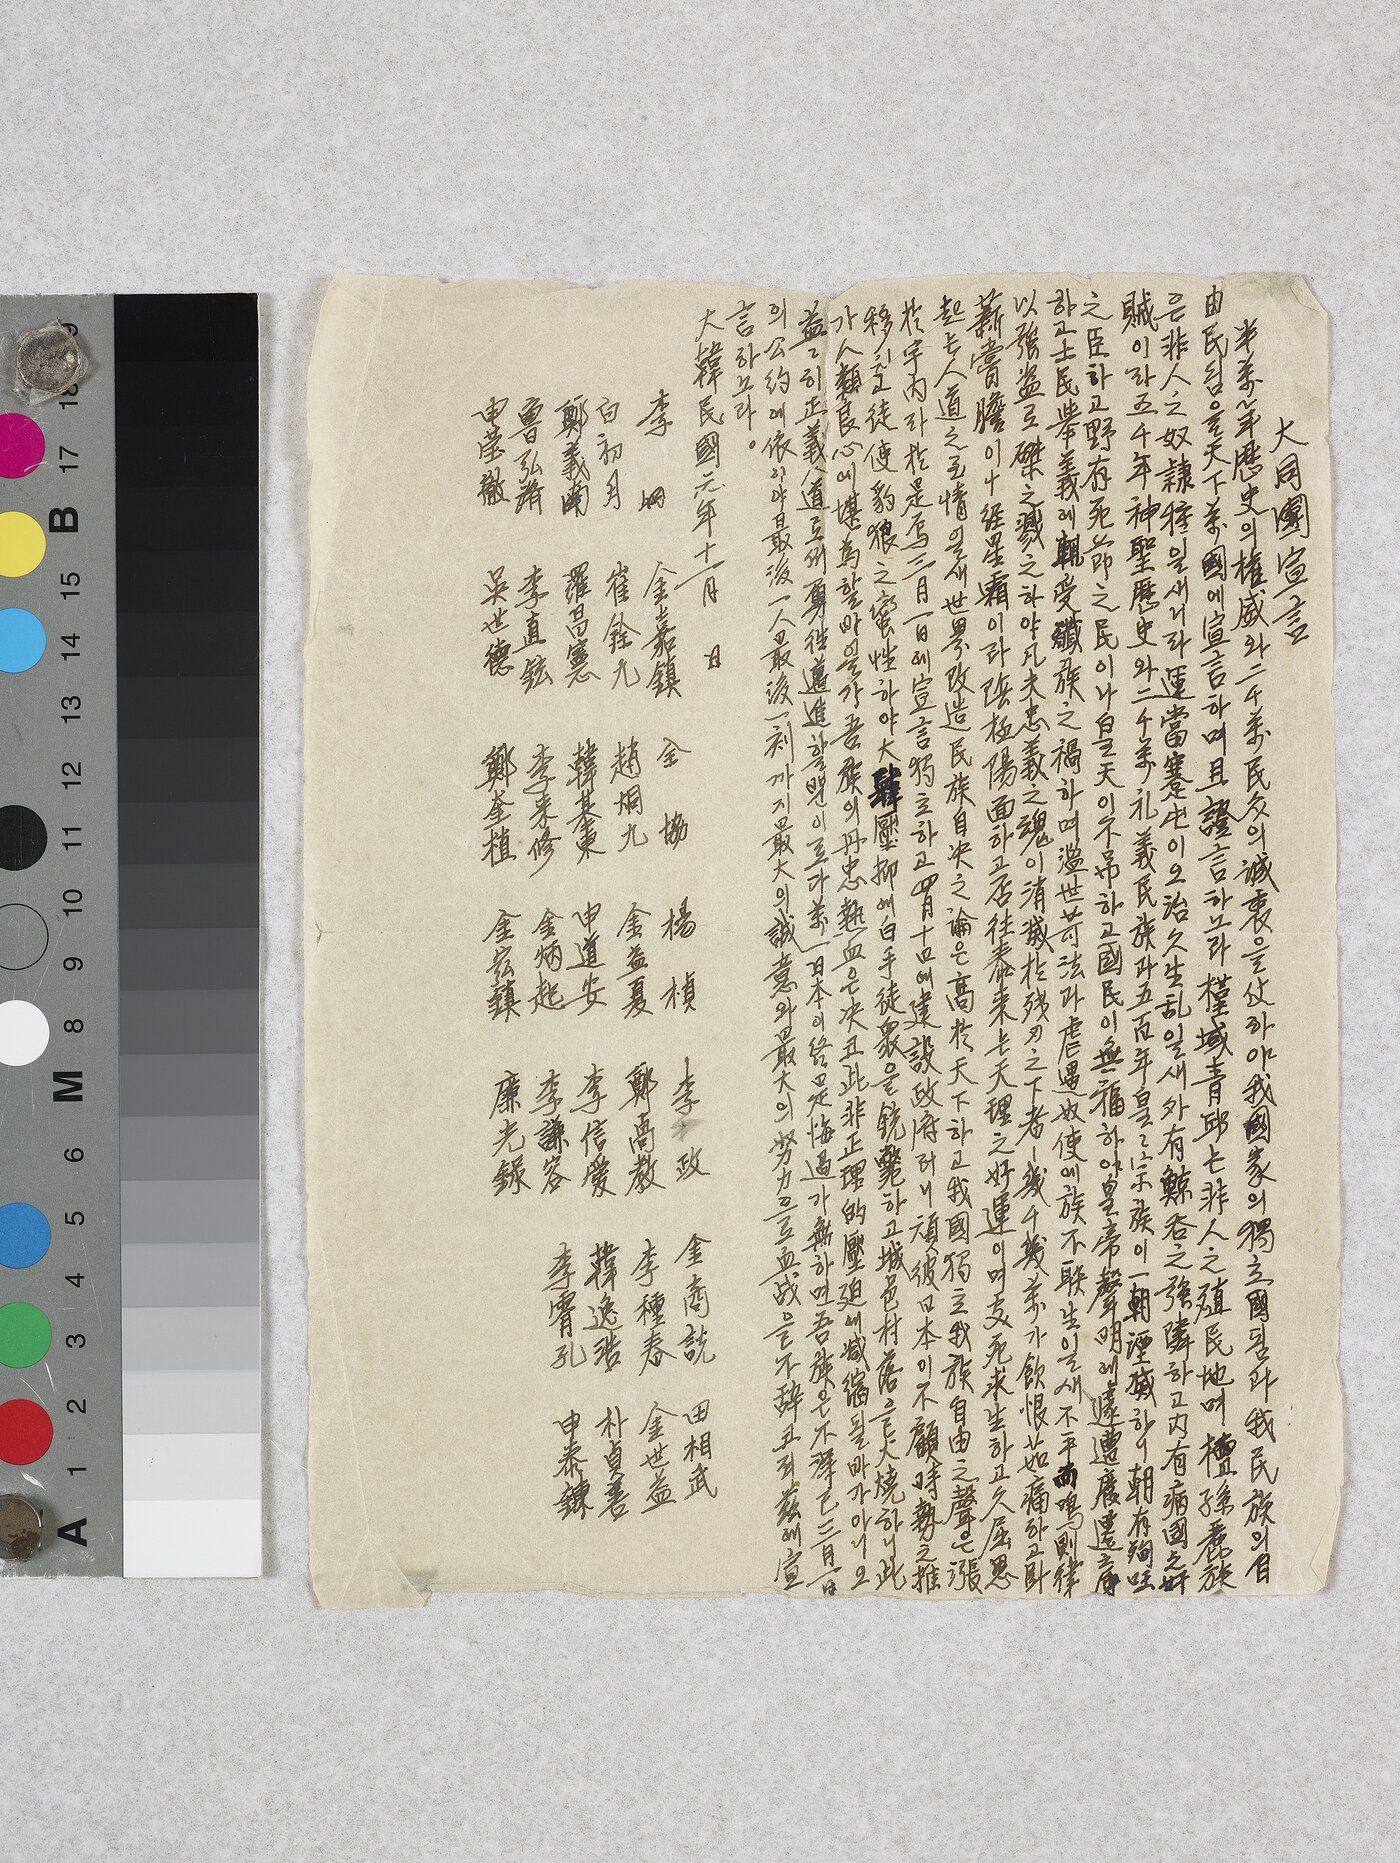 大同團宣言
半萬年歷史의權威와二千萬民衆의誠衷을仗하야我國家의獨立國됨과我民族의自
由民됨을天下萬國에宣言하며且證言하노라槿域靑邱는非人之殖民地며檀孫麗族
은非人之奴隷種일새니라運當蹇屯이오治久生乱일새外有鯨呑之强隣하고內有病國之奸
賊이라五千年神聖歷史와二千萬礼義民族과五百年皇皇宗族이一朝湮滅하니朝有殉
之臣하고野有死節之民이나皇天이不吊하고國民이無福하야皇帝聲明에遽遭廢遷之
하고士民擧義에輒受殲族之禍하며濫世苛法과虐遇奴使에族不聊生일새不平而鳴則律
以强盗로磔之戮之하야凡夫忠義之魂이消滅於殘刃之下者ㅣ幾千幾萬가飮恨茹痛하고臥
薪嘗膽이나經星霜이라陰極陽面하고否往泰來는天理之好運이며支死求生하고久屈思
起는人道之至情일새世界改造民族自决之論은高於天下하고我國獨立我族自由之聲은漲
於宇內라於是焉三月一日에宣言獨立하고四月十日에建設政府러니頑彼日本이不顧時勢之推
移하고徒使豹狼之蠻性하야大肆壓抑에白手徒衆을銃斃하고城邑村落을火燒하니此
가人類良心에堪為할바일가吾族의丹忠熱血은决코此非正理的壓迫에減縮될바가아니오
益々히正義人道로써勇往邁進할뿐이로다萬一日本이終是悔過가無하면吾族은不得已三月一日
의公約에依하야最後一人最後一刻까지最大의誠意와最大의努力으로血战을不辭코저玆에宣
言하노라。
大韓民國元年十一月 日
李堈 金嘉鎭 全協 楊楨 李政 金商説 田相武
白初月 崔銓九 趙炯九 金益夏 鄭髙教 李種春 金世益
鄭義南 羅昌憲 韓基東 申道安 李信愛 韓逸浩 朴貞善
魯弘濟 李直鉉 李来修 金炳起 李謙容 李霄孔 申泰鍊
申瑩徹 吳世德 鄭奎植 金宏鎭 廉光錄